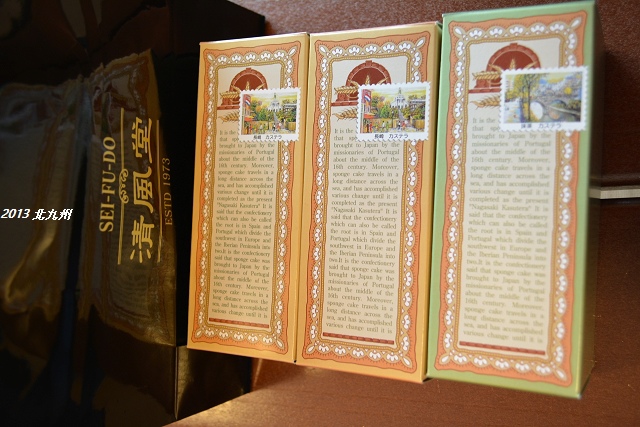 2013 北九州
SEI-FU-DO
清風堂
ESTD 1973
長崎 カステラ
It is
the
that
brought to Japan by the
missionaries of Portugal
about the middle of the
16th century. Moreover,
sponge cake travels in a
long distance across the
sea, and has accomplished
various change until it is
completed as the present
"Nagasaki Kasutera" It is
said that the confectionery
which can also be called
the root is in Spain and
Portugal which divide the
southwest in Europe and
the Iberian Peninsula into
two.It is the confectionery
said that sponge cake was
brought to Japan by the
missionaries of Portugal
about the middle of the
16th century. Moreover,
sponge cake travels in a
long distance across the
sea, and has accomplished
various change until it is
長崎 カステラ
It is the
that
brought to Japan by the
missionaries of Portugal
about the middle of the
16th century. Moreover,
sponge cake travels in a
long distance across the
sea, and has accomplished
various change until it is
completed as the present
"Nagasaki Kasutera" It is
said that the confectionery
which can also be called
the root is in Spain and
Portugal which divide the
southwest in Europe and
the Iberian Peninsula into
two.It is the confectionery
said that sponge cake was
brought to Japan by the
missionaries of Portugal
about the middle of the
16th century. Moreover,
sponge cake travels in a
long distance across the
sea, and has accomplished
various change until it is
抹茶 カステラ
It is the
said that sponge cake was
brought to Japan by the
missionaries of Portugal
about the middle of the
16th century. Moreover,
sponge cake travels in a
long distance across the
sea, and has accomplished
various change until it is
completed as the present
"Nagasaki Kasutera" It is
said that the confectionery
which can also be called
the root is in Spain and
Portugal which divide the
southwest in Europe and
the Iberian Peninsula into
two.It is the confectionery
said that sponge cake was
brought to Japan by the
missionaries of Portugal
about the middle of the
16th century. Moreover,
sponge cake travels in a
long distance across the
sea, and has accomplished
various change until it is